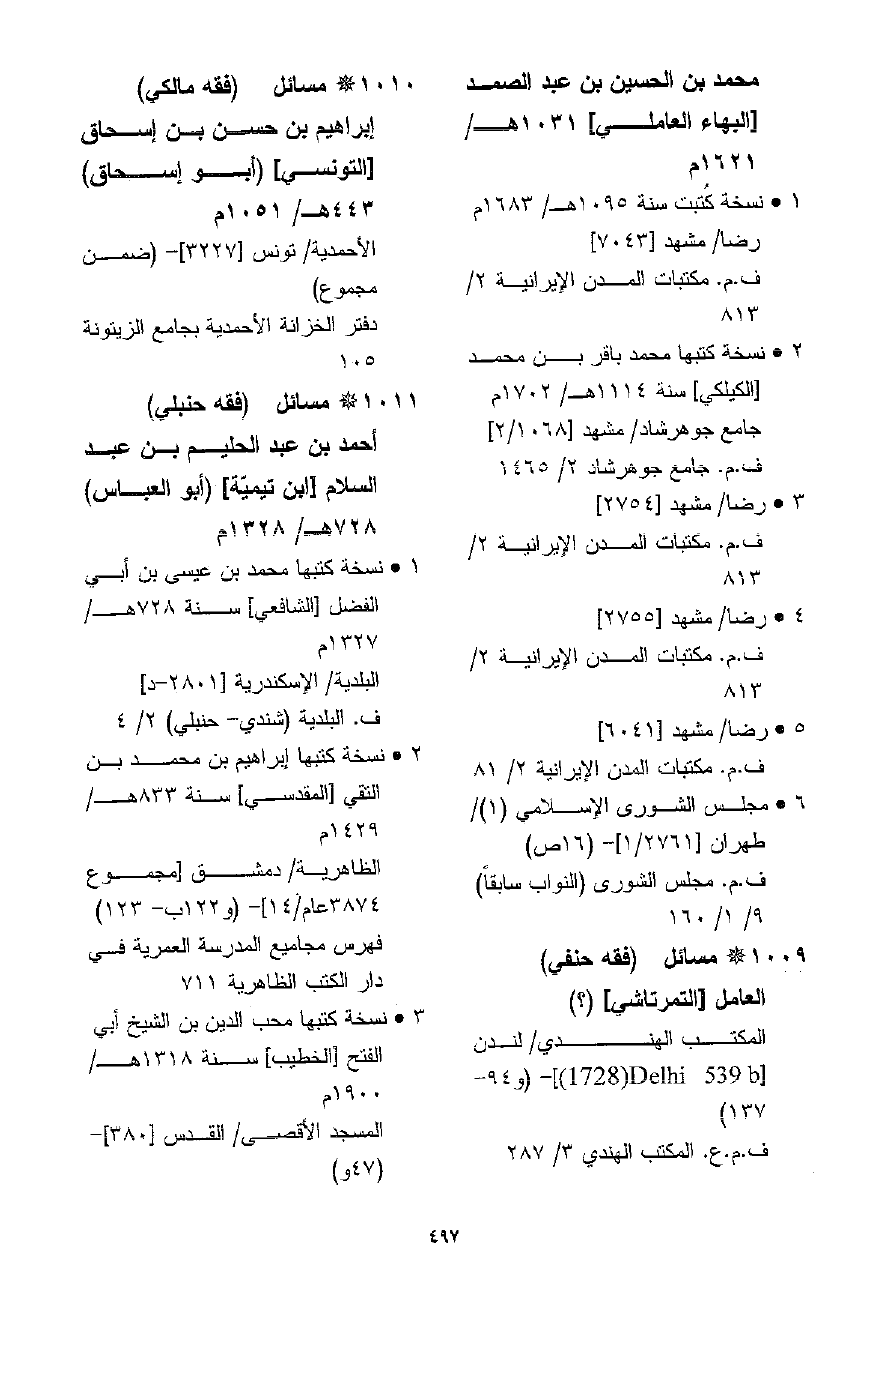 محمد بن الحسين بن عبد الصمد
[البهاء العاملي] ١٠٣١هـ/
١٦٢١م
١ • نسخة كُتبت سنة ١٠٩٥هـ/ ١٦٨٣م
رضا/ مشهد [٧٠٤٣]
ف.م. مكتبات المدن الإيرانية ٢/
٨١٣
٢ • نسخة كتبها محمد باقر بن محمد
[الكيلكي] سنة ١١١٤هـ/ ١٧٠٢م
جامع جوهرشاد/ مشهد [٢/١٠٦٨]
ف.م. جامع جوهرشاد ٢/ ١٤٦٥
٣ • رضا/ مشهد [٢٧٥٤]
ف.م. مكتبات المدن الإيرانية ٢/
٨١٣
٤ • رضا/ مشهد [٢٧٥٥]
ف.م. مكتبات المدن الإيرانية ٢/
٨١٣
٥ • رضا/ مشهد [٦٠٤١]
ف.م. مكتبات المدن الإيرانية ٢/ ٨١
٦ • مجلس الشورى الإسلامي (١)/
طهران [١/٢٧٦١]- (١٦ص)
ف.م. مجلس الشورى (النواب سابقاً)
٩/ ١/ ١٦٠
١٠٠٩ ❋ مسائل (فقه حنفي)
العامل [التمرتاشي] (؟)
المكتب الهندي/ لندن
[(1728)Delhi 539 b]- (و٩٤-
١٣٧)
ف.م.ع. المكتب الهندي ٣/ ٢٨٧
١٠١٠ ❋ مسائل (فقه مالكي)
إبراهيم بن حسن بن إسحاق
[التونسي] (أبو إسحاق)
٤٤٣هـ/ ١٠٥١م
الأحمدية/ تونس [٣٢٢٧]- (ضمن
مجموع)
دفتر الخزانة الأحمدية بجامع الزيتونة
١٠٥
١٠١١ ❋ مسائل (فقه حنبلي)
أحمد بن عبد الحليم بن عبد
السلام [ابن تيميّة] (أبو العباس)
٧٢٨هـ/ ١٣٢٨م
١ • نسخة كتبها محمد بن عيسى بن أبي
الفضل [الشافعي] سنة ٧٢٨هـ/
١٣٢٧م
البلدية/ الإسكندرية [٢٨٠١-د]
ف. البلدية (شندي- حنبلي) ٢/ ٤
٢ • نسخة كتبها إبراهيم بن محمد بن
التقي [المقدسي] سنة ٨٣٣هـ/
١٤٢٩م
الظاهرية/ دمشق [مجموع
٣٨٧٤عام/١٤]- (و١٢٢ب- ١٢٣)
فهرس مجاميع المدرسة العمرية في
دار الكتب الظاهرية ٧١١
٣ • نسخة كتبها محب الدين بن الشيخ أبي
الفتح [الخطيب] سنة ١٣١٨هـ/
١٩٠٠م
المسجد الأقصى/ القدس [٣٨٠]-
(٤٧و)
٤٩٧